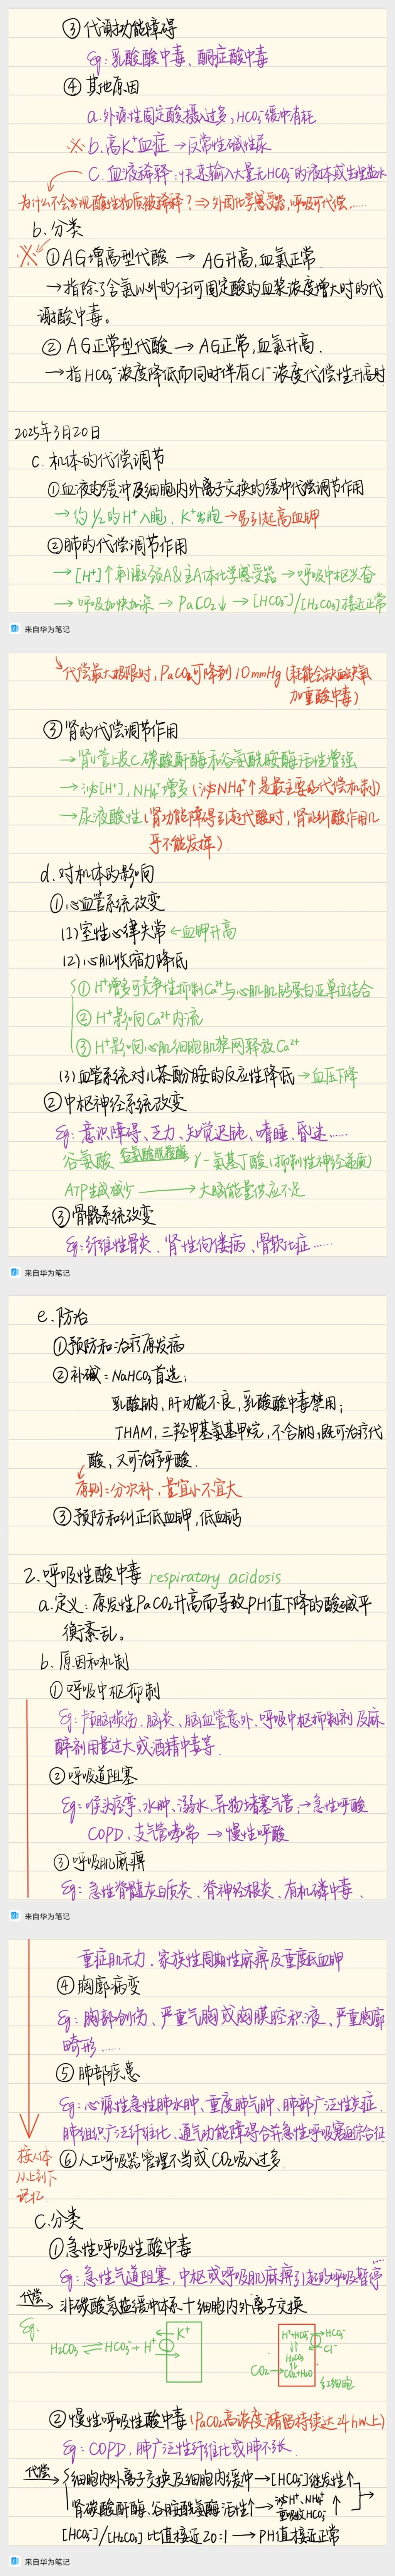 ③代谢功能障碍
Eg:乳酸酸中毒、酮症酸中毒
④其他原因
a.外源性固定酸摄入过多,HCO₃⁻缓冲消耗
※b.高K⁺血症→反常性碱性尿
C.血液稀释:快速输入大量无HCO₃⁻的液体或生理盐水
为什么不会出现酸性物质被稀释?⇒外周化学感受器,呼吸可代偿......
b.分类
※①AG增高型代酸→AG升高,血氯正常
→指除了含氯以外的任何固定酸的血浆浓度增大时的代
谢酸中毒。
②AG正常型代酸→AG正常,血氯升高.
→指HCO₃⁻浓度降低而同时伴有Cl⁻浓度代偿性升高时
2025年3月20日
C.机体的代偿调节
①血液的缓冲及细胞内外离子交换的缓冲代偿调节作用
→约1/2的H⁺入胞,K⁺出胞→易引起高血钾
②肺的代偿调节作用
→[H⁺]↑刺激颈A&主A体化学感受器→呼吸中枢兴奋
→呼吸加快加深→PaCO₂↓→[HCO₃⁻]/[H₂CO₃]接近正常
来自华为笔记
代偿最大极限时,PaCO₂可降到10mmHg(耗能会缺血缺氧
加重酸中毒)
③肾的代偿调节作用
→肾小管上皮C碳酸酐酶和谷氨酰胺酶活性增强
→泌[H⁺],NH₄⁺增多(泌NH₄⁺↑是最主要的代偿机制)
→尿液酸性(肾功能障碍引起代酸时,肾的纠酸作用几
乎不能发挥)
d.对机体的影响
①心血管系统改变
(1)室性心律失常←血钾升高
(2)心肌收缩力降低
①H⁺增多可竞争性抑制Ca²⁺与心肌肌钙蛋白亚单位结合
②H⁺影响Ca²⁺内流
③H⁺影响心肌细胞肌浆网释放Ca²⁺
(3)血管系统对儿茶酚胺的反应性降低→血压下降
②中枢神经系统改变
Eg:意识障碍、乏力、知觉迟钝、嗜睡、昏迷......
谷氨酸 谷氨酸脱羧酶 γ-氨基丁酸(抑制性神经递质)
ATP生成减少→大脑能量供应不足
③骨骼系统改变
Eg:纤维性骨炎、肾性佝偻病、骨软化症......
来自华为笔记
e.防治
①预防和治疗原发病
②补碱:NaHCO₃首选;
乳酸钠,肝功能不良,乳酸酸中毒禁用;
THAM,三羟甲基氨基甲烷,不含钠,既可治疗代
酸,又可治疗呼酸.
原则:分次补,量宜小不宜大
③预防和纠正低血钾,低血钙
2.呼吸性酸中毒 respiratory acidosis
a.定义:原发性PaCO₂升高而导致PH值下降的酸碱平
衡紊乱。
b.原因和机制
①呼吸中枢抑制
Eg:颅脑损伤、脑炎、脑血管意外、呼吸中枢抑制剂及麻
醉剂用量过大或酒精中毒等.
②呼吸道阻塞
Eg:喉头痉挛、水肿、溺水、异物堵塞气管,→急性呼酸
COPD、支气管哮喘→慢性呼酸
③呼吸肌麻痹
Eg:急性脊髓灰白质炎、脊神经根炎、有机磷中毒、
来自华为笔记
重症肌无力、家族性周期性麻痹及重度低血钾
④胸廓病变
Eg:胸部创伤、严重气胸或胸膜腔积液、严重胸廓
畸形......
⑤肺部疾患
Eg:心源性急性肺水肿、重度肺气肿、肺部广泛性炎症、
肺组织广泛纤维化、通气功能障碍合并急性呼吸窘迫综合征
⑥人工呼吸器管理不当或CO₂吸入过多.
按人体
从上到下
记忆.
C.分类
①急性呼吸性酸中毒
Eg:急性气道阻塞,中枢或呼吸肌麻痹引起的呼吸暂停......
代偿→非碳酸氢盐缓冲体系+细胞内外离子交换
Eg:
H₂CO₃⇌HCO₃⁻+H⁺ K⁺
H⁺+HCO₃⁻→HCO₃⁻
Cl⁻
H₂CO₃
CO₂→CO₂+H₂O
红细胞
②慢性呼吸性酸中毒(PaCO₂高浓度潴留持续达24h以上)
Eg:COPD,肺广泛性纤维化或肺不张.
代偿→细胞内外离子交换及细胞内缓冲→[HCO₃⁻]继发性↑
肾碳酸酐酶、谷氨酰胺酶活性↑→泌H⁺、NH₄⁺ ↑
重吸收HCO₃⁻
[HCO₃⁻]/[H₂CO₃]比值接近20:1→PH值接近正常
来自华为笔记